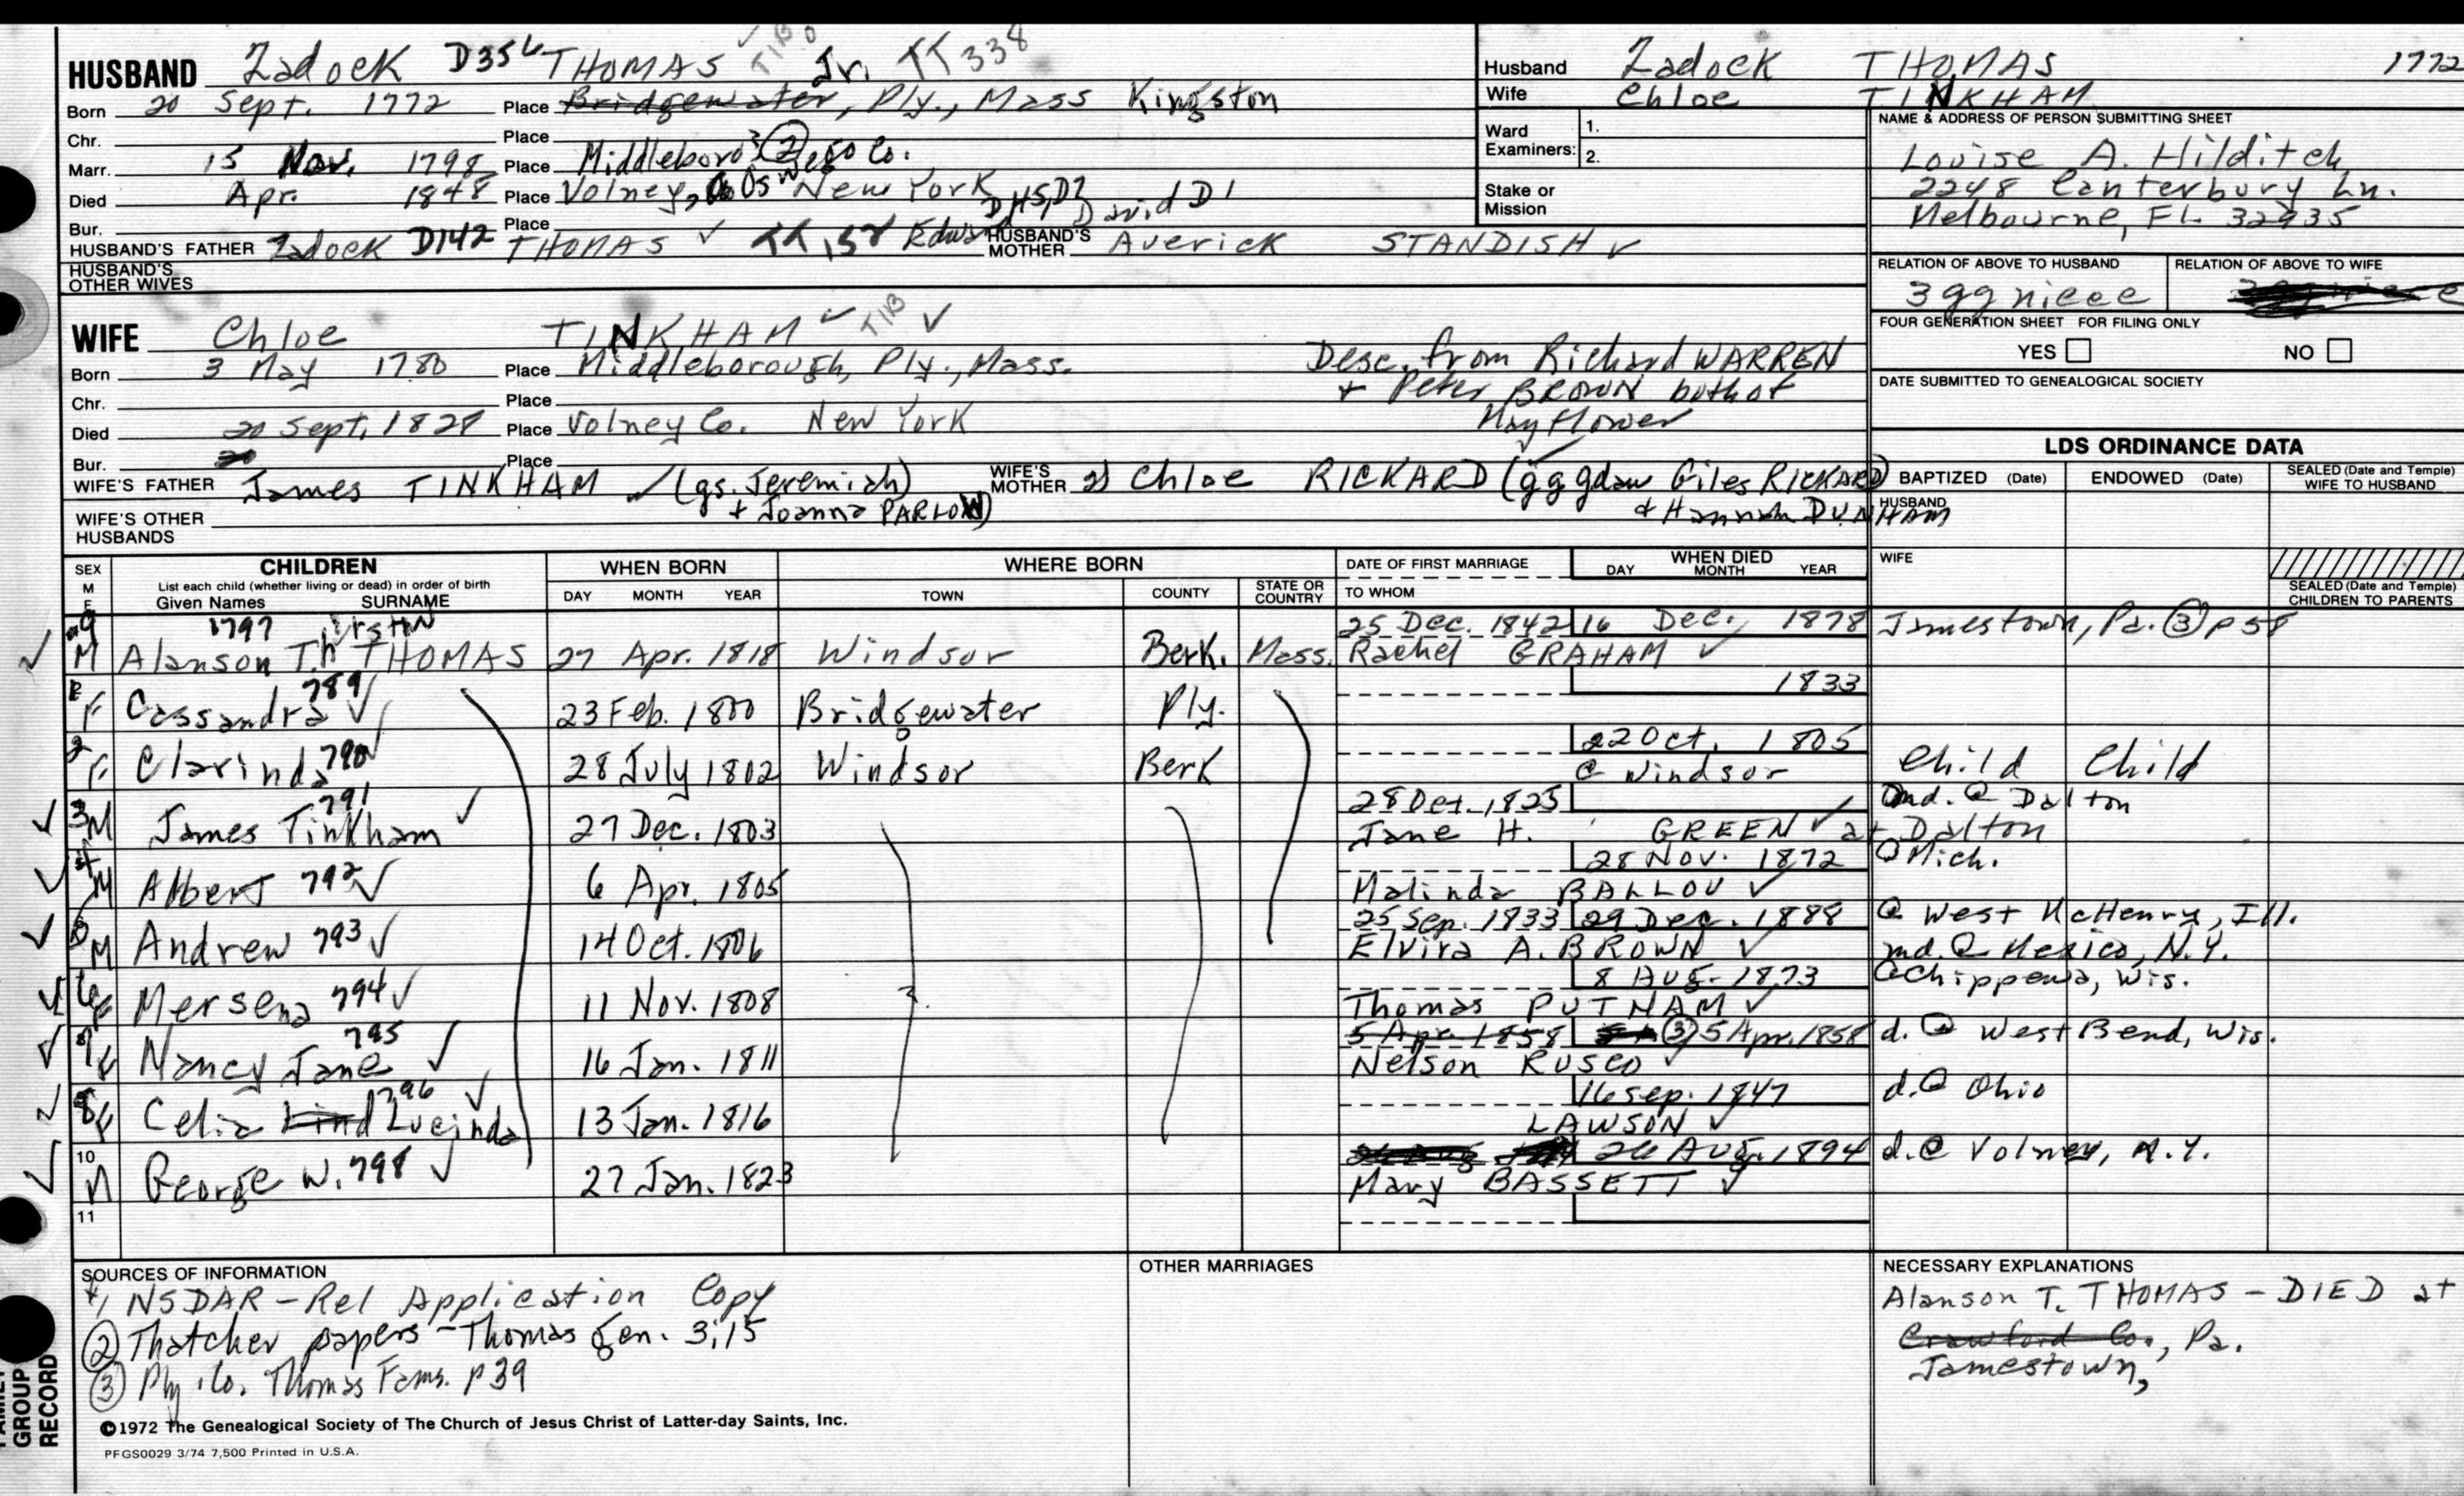 HUSBAND Zadock D356 THOMAS Jr. TT 338
Born 20 Sept. 1772 Place Bridgewater, Ply., Mass Kingston
Chr. Place
Marr. 15 Nov. 1798 Place Middleboro ②
Died Apr. 1848 Place Volney, Oswego Co. New York
Bur. Place
HUSBAND'S FATHER Zadock D142 THOMAS ✓ HUSBAND'S MOTHER Averick STANDISH ✓
David D1
HUSBAND'S OTHER WIVES
Husband Zadock THOMAS 1772
Wife Chloe TINKHAM
Ward Examiners: 1.
2.
Stake or Mission
NAME & ADDRESS OF PERSON SUBMITTING SHEET
Louise A. Hilditch
2248 Canterbury Ln.
Melbourne, FL. 32935
RELATION OF ABOVE TO HUSBAND RELATION OF ABOVE TO WIFE
3 gg niece
FOUR GENERATION SHEET FOR FILING ONLY
YES NO
DATE SUBMITTED TO GENEALOGICAL SOCIETY
WIFE Chloe TINKHAM ✓ TIB ✓
Born 3 May 1780 Place Middleborough, Ply., Mass.
Chr. Place
Died 20 Sept. 1828 Place Volney Co. New York
Bur. Place
Desc. from Richard WARREN
+ Peter BROWN both of
Mayflower
WIFE'S FATHER James TINKHAM ✓ (gs. Jeremiah)
+ Joanna PARLOW)
WIFE'S MOTHER 2) Chloe RICKARD (gggdau Giles RICKARD)
+ Hannah DUNHAM
WIFE'S OTHER HUSBANDS
LDS ORDINANCE DATA
BAPTIZED (Date) ENDOWED (Date) SEALED (Date and Temple) WIFE TO HUSBAND
HUSBAND
WIFE
SEALED (Date and Temple) CHILDREN TO PARENTS
SEX M F
CHILDREN
List each child (whether living or dead) in order of birth
Given Names SURNAME
WHEN BORN
DAY MONTH YEAR
WHERE BORN
TOWN COUNTY STATE OR COUNTRY
DATE OF FIRST MARRIAGE
TO WHOM
WHEN DIED
DAY MONTH YEAR
25 Dec. 1842 16 Dec. 1878 Jamestown, Pa. ③ p 58
9 M 797 Alanson T. THOMAS 27 Apr. 1818 Windsor Berk. Mass. Rachel GRAHAM ✓
1833
F Cassandra 789 ✓ 23 Feb. 1800 Bridgewater Ply.
22 Oct. 1805
2 F Clarinda 790 ✓ 28 July 1802 Windsor Berk @ Windsor Child Child
28 Oct. 1825 md. @ Dalton
3 M James Tinkham 791 ✓ 27 Dec. 1803 Jane H. GREEN ✓ at Dalton
28 Nov. 1872 @ Mich.
4 M Albert 792 ✓ 6 Apr. 1805 Malinda BALLOU ✓
25 Sep. 1833 29 Dec. 1888 @ West McHenry, Ill.
5 M Andrew 793 ✓ 14 Oct. 1806 Elvira A. BROWN ✓ md. @ Mexico, N.Y.
8 Aug. 1873 @ Chippewa, Wis.
6 F Mersena 794 ✓ 11 Nov. 1808 Thomas PUTNAM ✓
5 Apr. 1858 ③ 5 Apr. 1858 d. @ West Bend, Wis.
7 F Nancy Jane 795 ✓ 16 Jan. 1811 Nelson RUSCO ✓
16 Sep. 1847 d. @ Ohio
8 F Celia Lind Lucinda 796 ✓ 13 Jan. 1816 LAWSON ✓
26 Aug. 1894 d. @ Volney, N.Y.
10 M George W. 798 ✓ 27 Jan. 1823 Mary BASSETT ✓
11
SOURCES OF INFORMATION
1 NSDAR - Rel Application Copy
② Thatcher papers - Thomas gen. 3;15
③ Ply. Co. Thomas Fams. p 39
OTHER MARRIAGES
NECESSARY EXPLANATIONS
Alanson T. THOMAS - DIED at
Crawford Co., Pa.
Jamestown,
FAMILY GROUP RECORD
©1972 The Genealogical Society of The Church of Jesus Christ of Latter-day Saints, Inc.
PFGS0029 3/74 7,500 Printed in U.S.A.